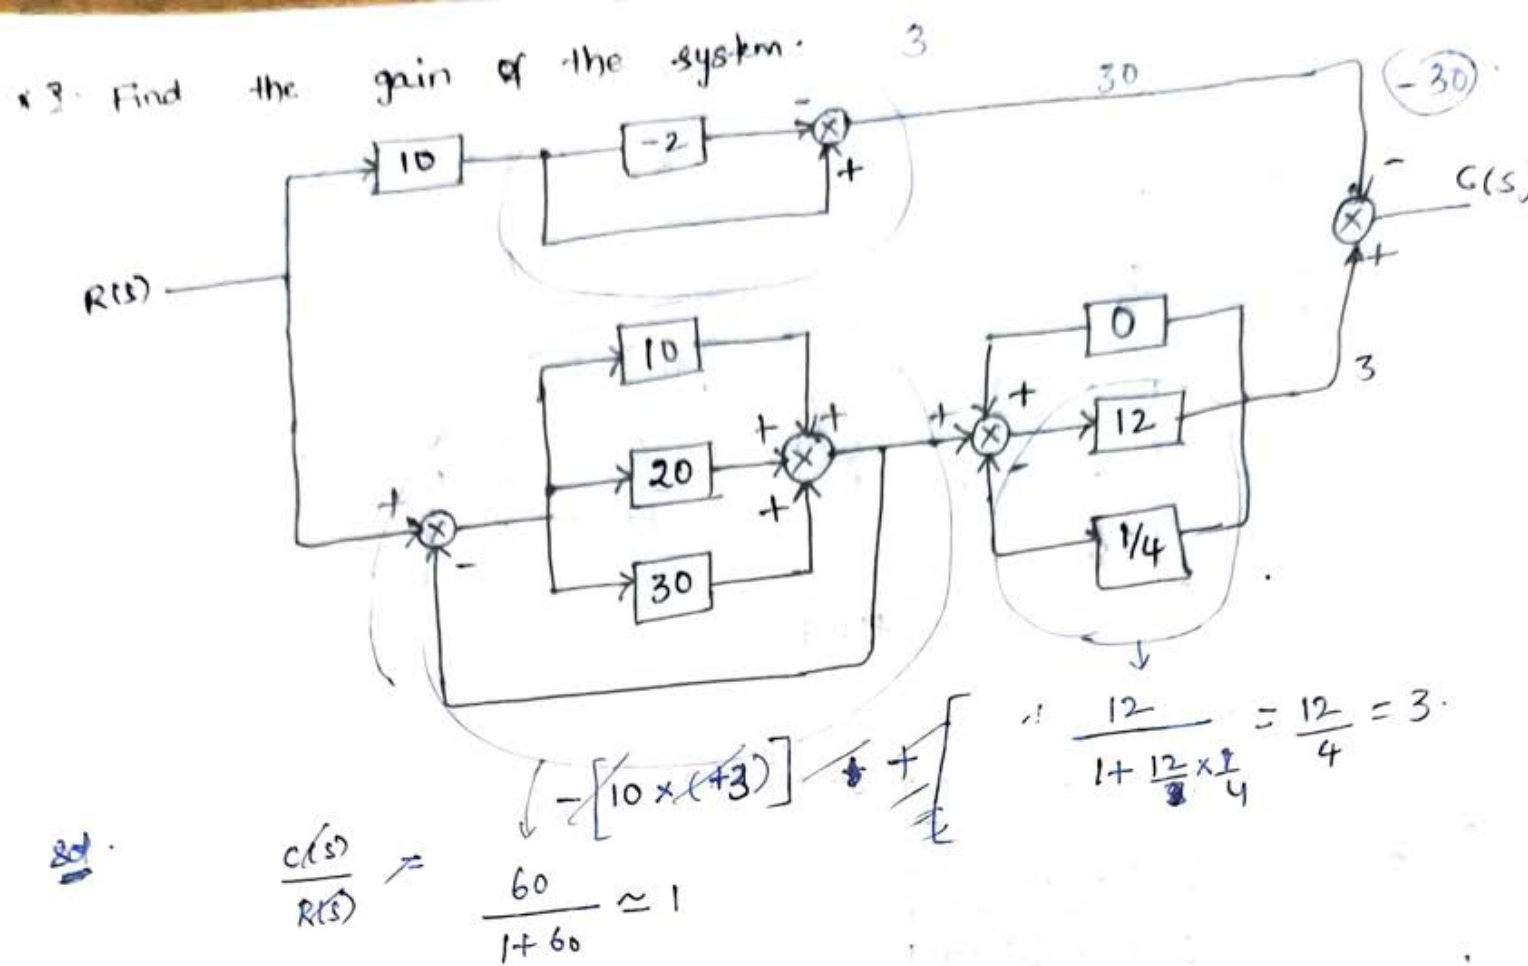 *3. Find the gain of the system. 3
30
- 30
10
-2
-
+
-
C(s)
+
R(s)
10
0
3
+
+
+
+
12
20
+
-
+
-
30
1/4
- [10 × (+3)] + [
12 / 1 + 12 × 1/4 = 12/4 = 3.
Sol.
C(s)/R(s) =
60 / 1 + 60 ≃ 1